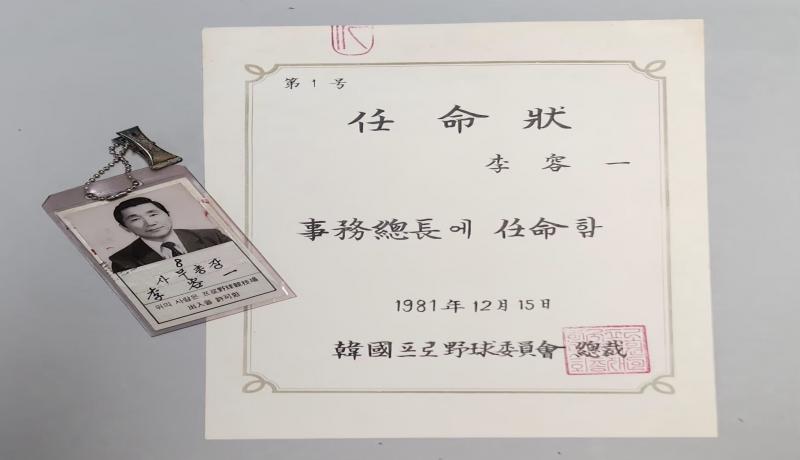 第 1 号
任 命 狀
李 容 一
事務總長에 任命함
1981年 12月 15日
韓國프로野球委員會 總裁
8
사무총장
李 容 一
위의 사람은 프로野球競技場
出入을 許可함